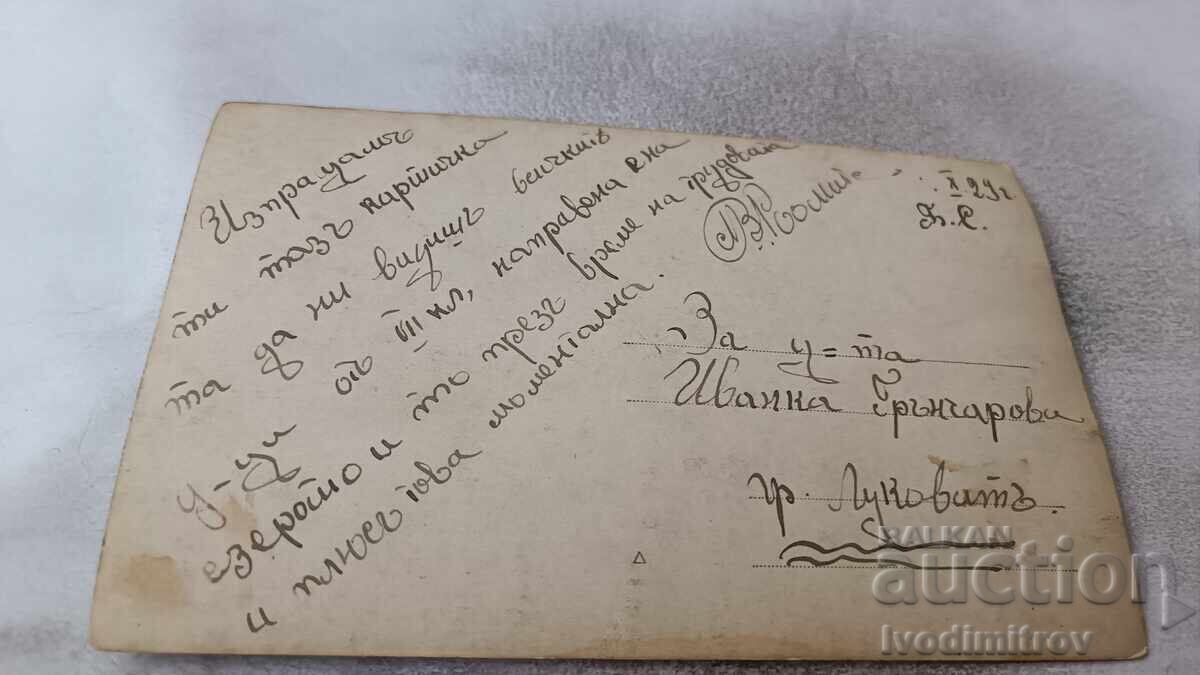 Изпращамъ
ти тазъ картичка
та да ни видишъ всичкитѣ
у-ци отъ VIII кл, направена е на
езерото и то презъ време на трудовата
и плюсъ това моментална.
X 29 г.
За у=та
Иванка Грънчарова
гр. Луковитъ.
BALKAN
auction
Ivodimitrov